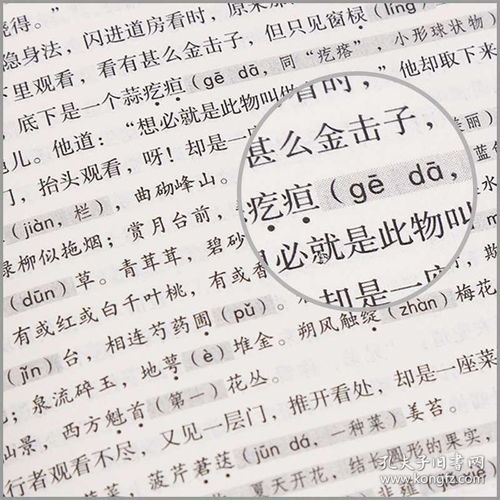 晓得。”
隐身法，闪进道房看时，原来那
下里观看，看有甚么金击子，但只见窗棂（líng）
，底下是一个蒜疙疸（gē dā，同“疙瘩”，小形球状物
绳儿。他道：“想必就是此物叫做
”他却取下来
门，抬头观看，呀！却是一座
（jiàn，栏），曲砌峰山。
绿柳似拖烟；赏月台前，
（dūn）草。青茸茸，碧砂
有或红或白千叶桃，有或香
（jǐn）台，相连芍药圃（pǔ）。
水
（è）堆金。朔风触绽（zhàn）梅花
；泉流碎玉，地萼
仙景，西方魁首（第一）花丛。
行者观看不尽，又见一层门，推开看处，却是一座菜
，菠芹莙荙（jūn dá，一种菜）姜苔。
夏天开花，结长圆形的果实，
看时，
甚么金击子，
疙疸（gē dā，
必就是此物叫
却是一座
孔夫子旧书网
www.kongfz.com